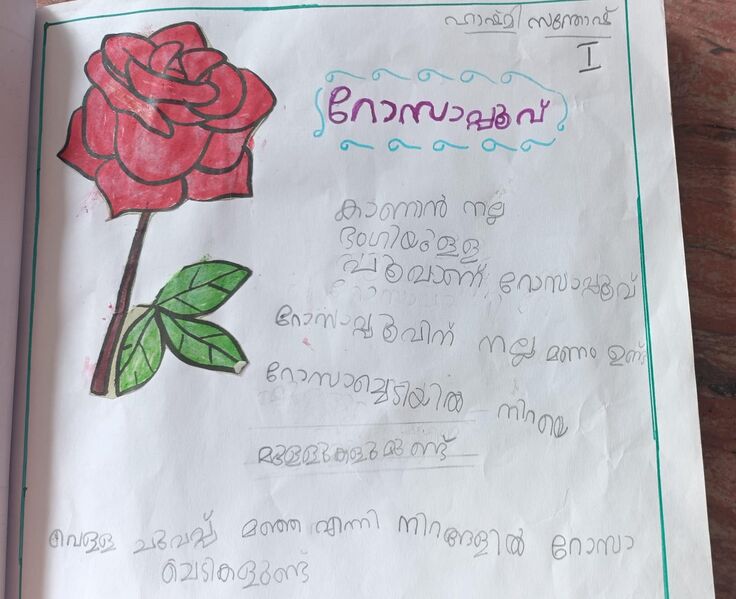 ഹാഷ്മി സന്തോഷ്
I
റോസാപ്പൂവ്
കാണാൻ നല്ല
ഭംഗിയുള്ള
പൂവാണ് റോസാപ്പൂവ്
റോസാപ്പൂവിന് നല്ല മണം ഉണ്ട്
റോസാച്ചെടിയിൽ നിറയെ
മുള്ളുകളുമുണ്ട്
വെള്ള ചുവപ്പ് മഞ്ഞ എന്നി നിറങ്ങളിൽ റോസാ
ചെടികളുണ്ട്